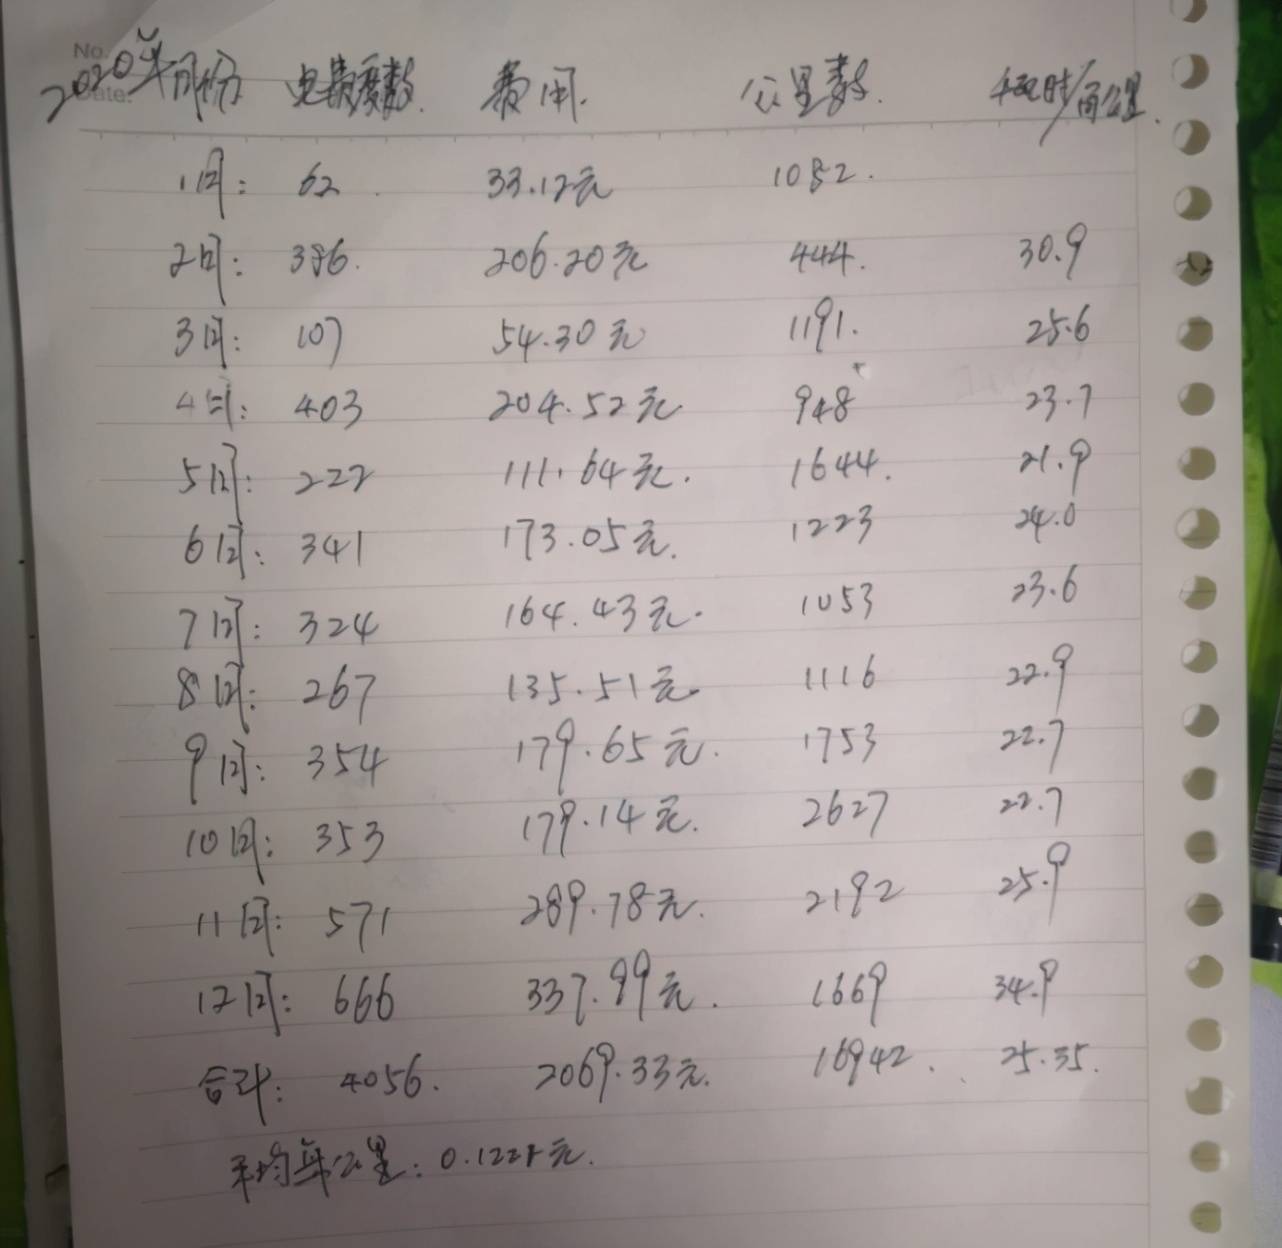 No.
Date:
2020年月份 电费度数. 费用. 公里数. 千瓦时/百公里.
1月: 62 33.12元 1082.
2月: 386. 206.20元 444. 30.9
3月: 107 54.30元 1191. 25.6
4月: 403 204.52元 948 23.7
5月: 222 111.64元. 1644. 21.9
6月: 341 173.05元. 1223 24.0
7月: 324 164.43元. 1053 23.6
8月: 267 135.51元. 1116 22.9
9月: 354 179.65元. 1753 22.7
10月: 353 179.14元. 2627 22.7
11月: 571 289.78元. 2192 25.9
12月: 666 337.99元. 1669 34.9
合计: 4056. 2069.33元. 16942. 25.35.
平均每公里: 0.1221元.